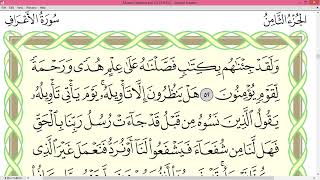 الجُزْءُ الثَّامِنُ
سُورَةُ الأَعْرَافِ
وَلَقَدْ جِئْنَٰهُم بِكِتَٰبٍ فَصَّلْنَٰهُ عَلَىٰ عِلْمٍ هُدًى وَرَحْمَةً
لِّقَوْمٍ يُؤْمِنُونَ ٥٢ هَلْ يَنظُرُونَ إِلَّا تَأْوِيلَهُۥ ۚ يَوْمَ يَأْتِى تَأْوِيلُهُۥ
يَقُولُ ٱلَّذِينَ نَسُوهُ مِن قَبْلُ قَدْ جَآءَتْ رُسُلُ رَبِّنَا بِٱلْحَقِّ
فَهَل لَّنَا مِن شُفَعَآءَ فَيَشْفَعُوا۟ لَنَآ أَوْ نُرَدُّ فَنَعْمَلَ غَيْرَ ٱلَّذِى